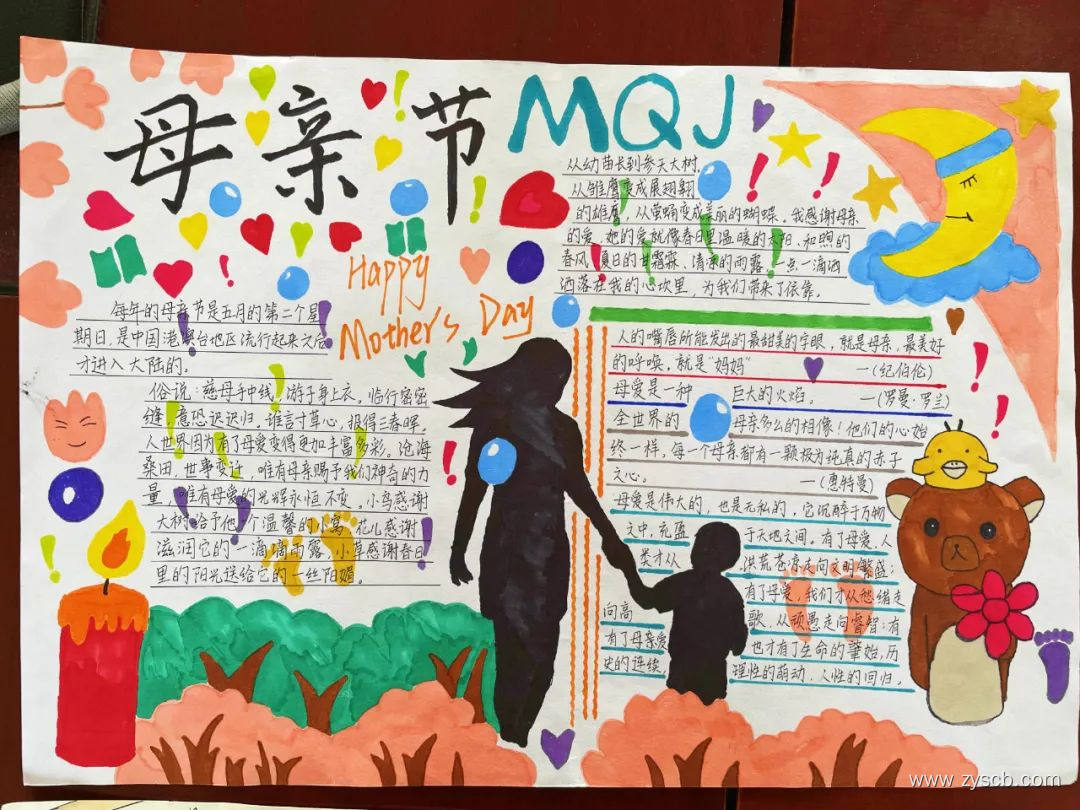 母亲节
MQJ
Happy
Mother's Day
每年的母亲节是五月的第二个星
期日,是中国港澳台地区流行起来之后
才进入大陆的。
俗说:慈母手中线,游子身上衣,临行密密
缝,意恐迟迟归。谁言寸草心,报得三春晖。
人世界因为有了母爱变得更加丰富多彩。沧海
桑田,世事变迁,唯有母亲赐予我们神奇的力
量,唯有母爱的光辉永恒不变。小鸟感谢
大树给予他一个温馨的小窝,花儿感谢
滋润它的一滴滴雨露,小草感谢春日
里的阳光送给它的一丝阳媚。
从幼苗长到参天大树,
从雏鹰变成展翅翱翔
的雄鹰,从茧蛹变成美丽的蝴蝶。我感谢母亲
的爱,她的爱就像春日里温暖的太阳、和煦的
春风,夏日的甘霜霖、清凉的雨露,一点一滴洒
洒落在我的心坎里,为我们带来了依靠。
人的嘴唇所能发出的最甜美的字眼,就是母亲,最美好
的呼唤,就是"妈妈" —(纪伯伦)
母爱是一种 巨大的火焰。 —(罗曼·罗兰)
全世界的 母亲多么的相像!他们的心始
终一样,每一个母亲都有一颗极为纯真的赤子
之心。 —(惠特曼)
母爱是伟大的,也是无私的,它沉醉于万物
之中,充盈 于天地之间,有了母爱,人
类才从 洪荒苍凉走向文明繁盛;
有了母爱,我们才从愁绪走
向高 歌,从顽愚走向睿智;有
有了母亲爱 也才有了生命的肇始,历
史的连续 理性的萌动,人性的回归。
www.zyscb.com